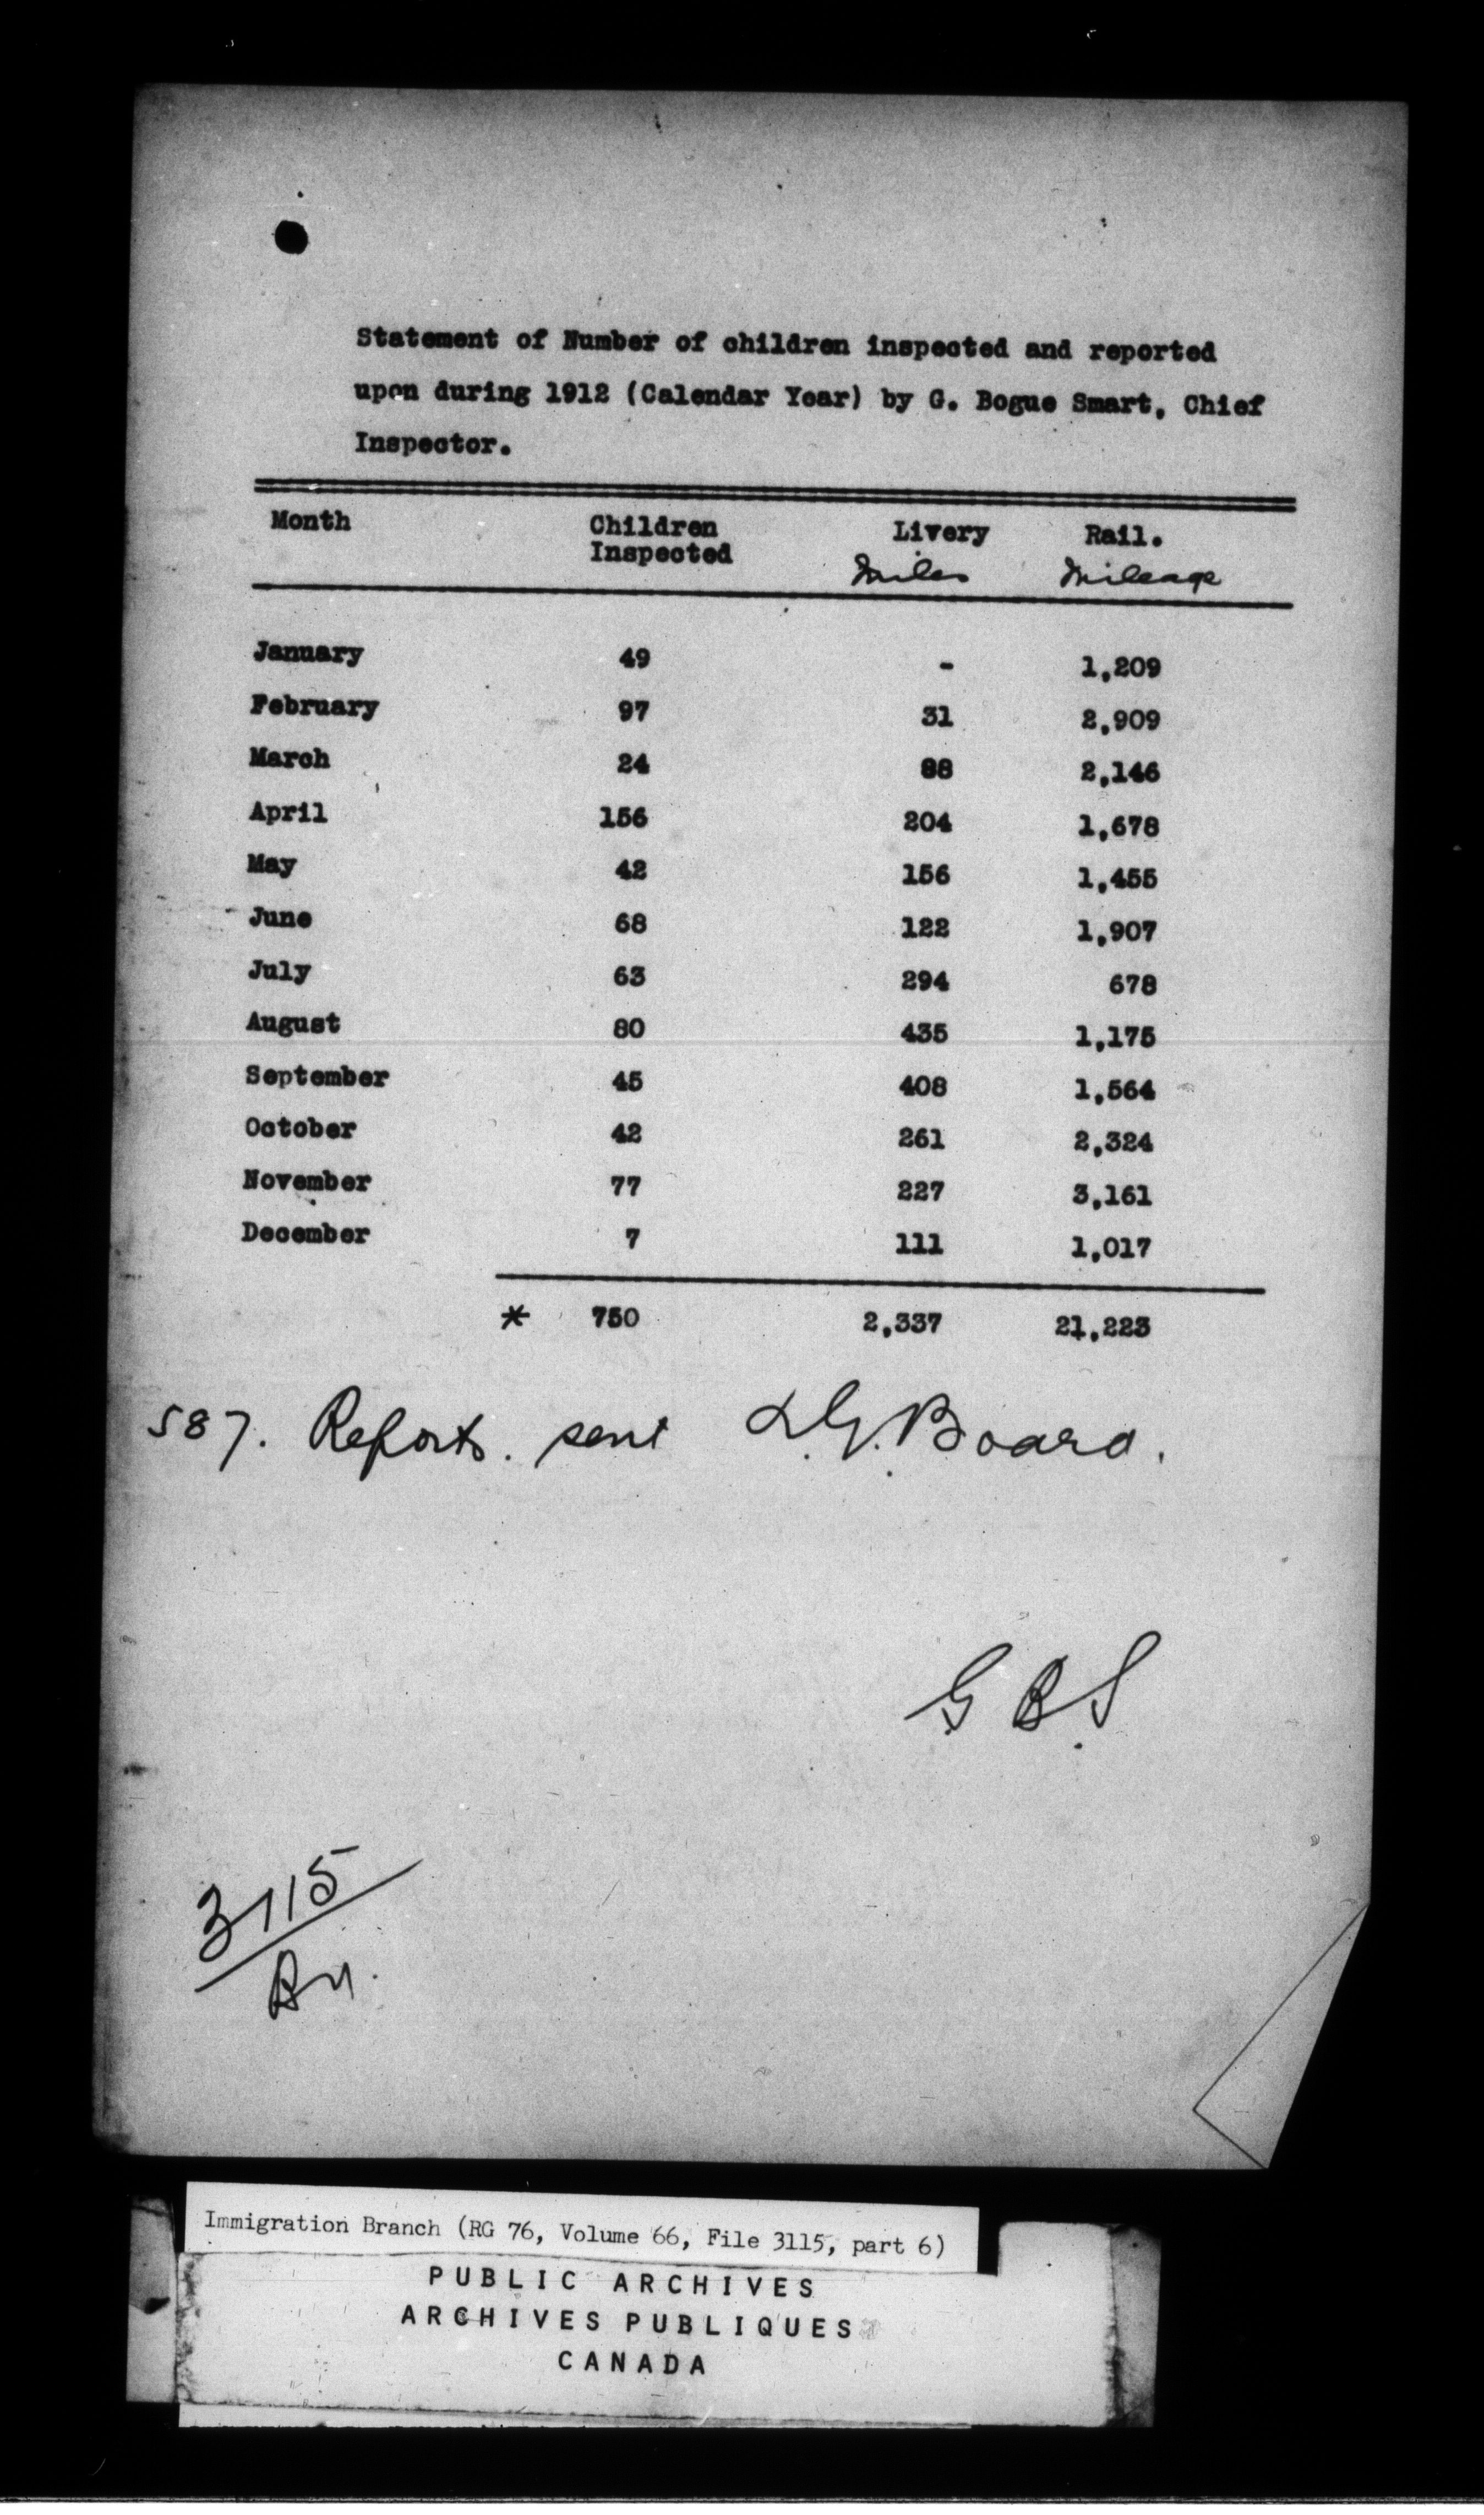 Statement of Number of children inspected and reported
upon during 1912 (Calendar Year) by G. Bogue Smart, Chief
Inspector.
Month Children Inspected Livery Miles Rail. Mileage
January 49 - 1,209
February 97 31 2,909
March 24 88 2,146
April 156 204 1,678
May 42 156 1,455
June 68 122 1,907
July 63 294 678
August 80 435 1,175
September 45 408 1,564
October 42 261 2,324
November 77 227 3,161
December 7 111 1,017
* 750 2,337 21,223
587. Reports. sent L.G. Board.
G B S
3115
Immigration Branch (RG 76, Volume 66, File 3115, part 6)
PUBLIC ARCHIVES
ARCHIVES PUBLIQUES
CANADA